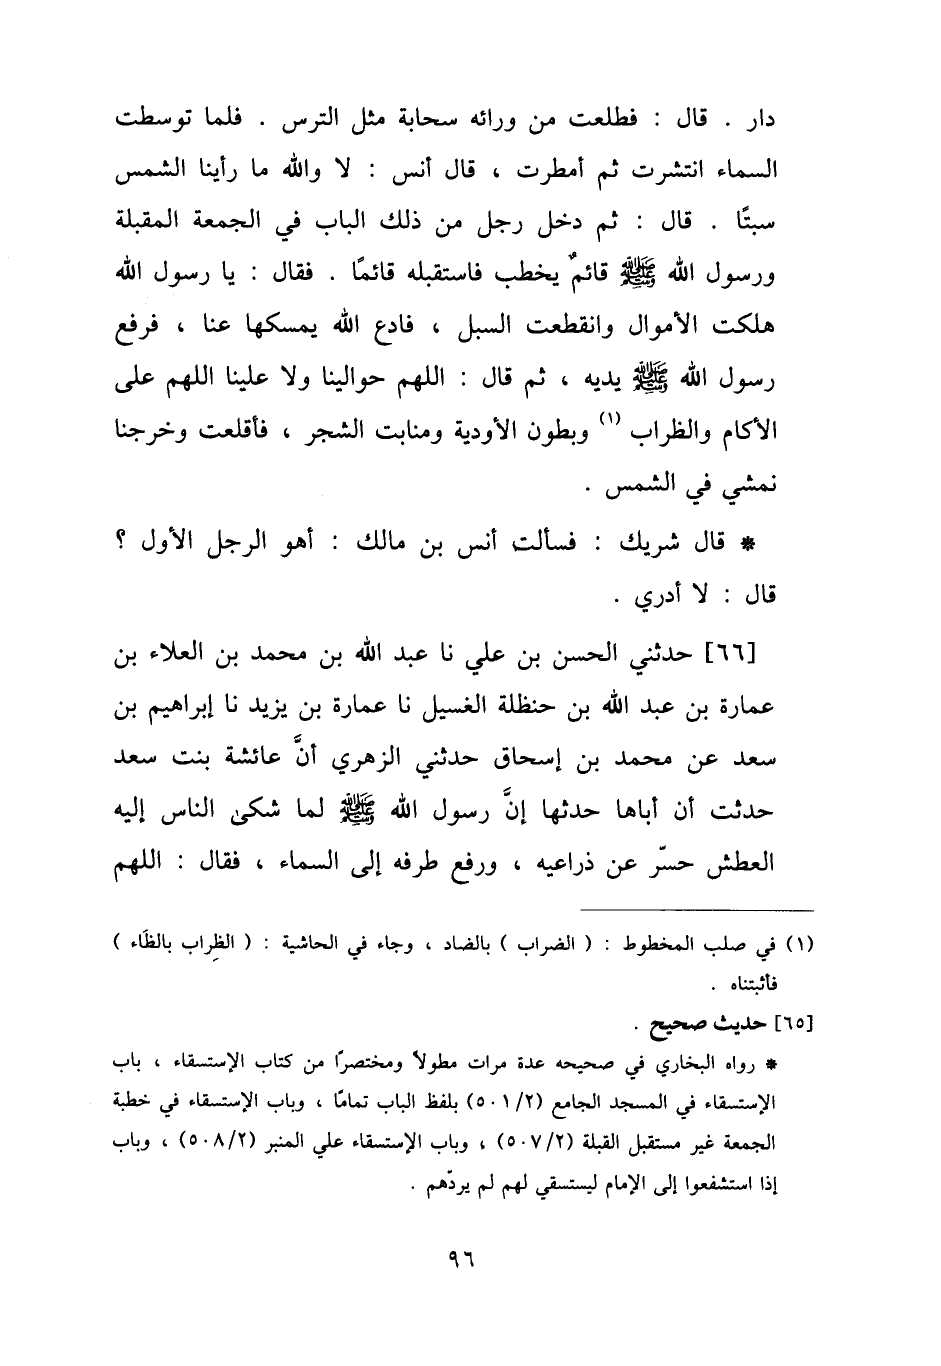 دار . قال : فطلعت من ورائه سحابة مثل الترس . فلما توسطت
السماء انتشرت ثم أمطرت ، قال أنس : لا والله ما رأينا الشمس
سبتًا . قال : ثم دخل رجل من ذلك الباب في الجمعة المقبلة
ورسول الله ﷺ قائمٌ يخطب فاستقبله قائمًا . فقال : يا رسول الله
هلكت الأموال وانقطعت السبل ، فادع الله يمسكها عنا ، فرفع
رسول الله ﷺ يديه ، ثم قال : اللهم حوالينا ولا علينا اللهم على
الأكام والظراب (١) وبطون الأودية ومنابت الشجر ، فأقلعت وخرجنا
نمشي في الشمس .
* قال شريك : فسألت أنس بن مالك : أهو الرجل الأول ؟
قال : لا أدري .
[٦٦] حدثني الحسن بن علي نا عبد الله بن محمد بن العلاء بن
عمارة بن عبد الله بن حنظلة الغسيل نا عمارة بن يزيد نا إبراهيم بن
سعد عن محمد بن إسحاق حدثني الزهري أنَّ عائشة بنت سعد
حدثت أن أباها حدثها إنَّ رسول الله ﷺ لما شكىٰ الناس إليه
العطش حسّر عن ذراعيه ، ورفع طرفه إلى السماء ، فقال : اللهم
(١) في صلب المخطوط : ( الضراب ) بالضاد ، وجاء في الحاشية : ( الظِراب بالظَاء )
فأثبتناه .
[٦٥] حديث صحيح .
* رواه البخاري في صحيحه عدة مرات مطولاً ومختصرًا من كتاب الإستسقاء ، باب
الإستسقاء في المسجد الجامع (٥٠١/٢) بلفظ الباب تمامًا ، وباب الإستسقاء في خطبة
الجمعة غير مستقبل القبلة (٥٠٧/٢) ، وباب الإستسقاء علي المنبر (٥٠٨/٢) ، وباب
إذا استشفعوا إلى الإمام ليستسقي لهم لم يردّهم .
٩٦